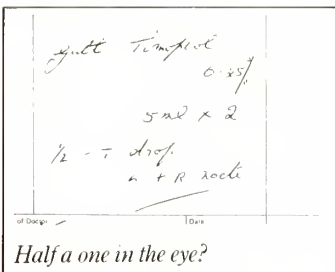 Timoptol
0.25%
5 ml x 2
1/2 - T drop
nocte
of Doctor
Date
Half a one in the eye?